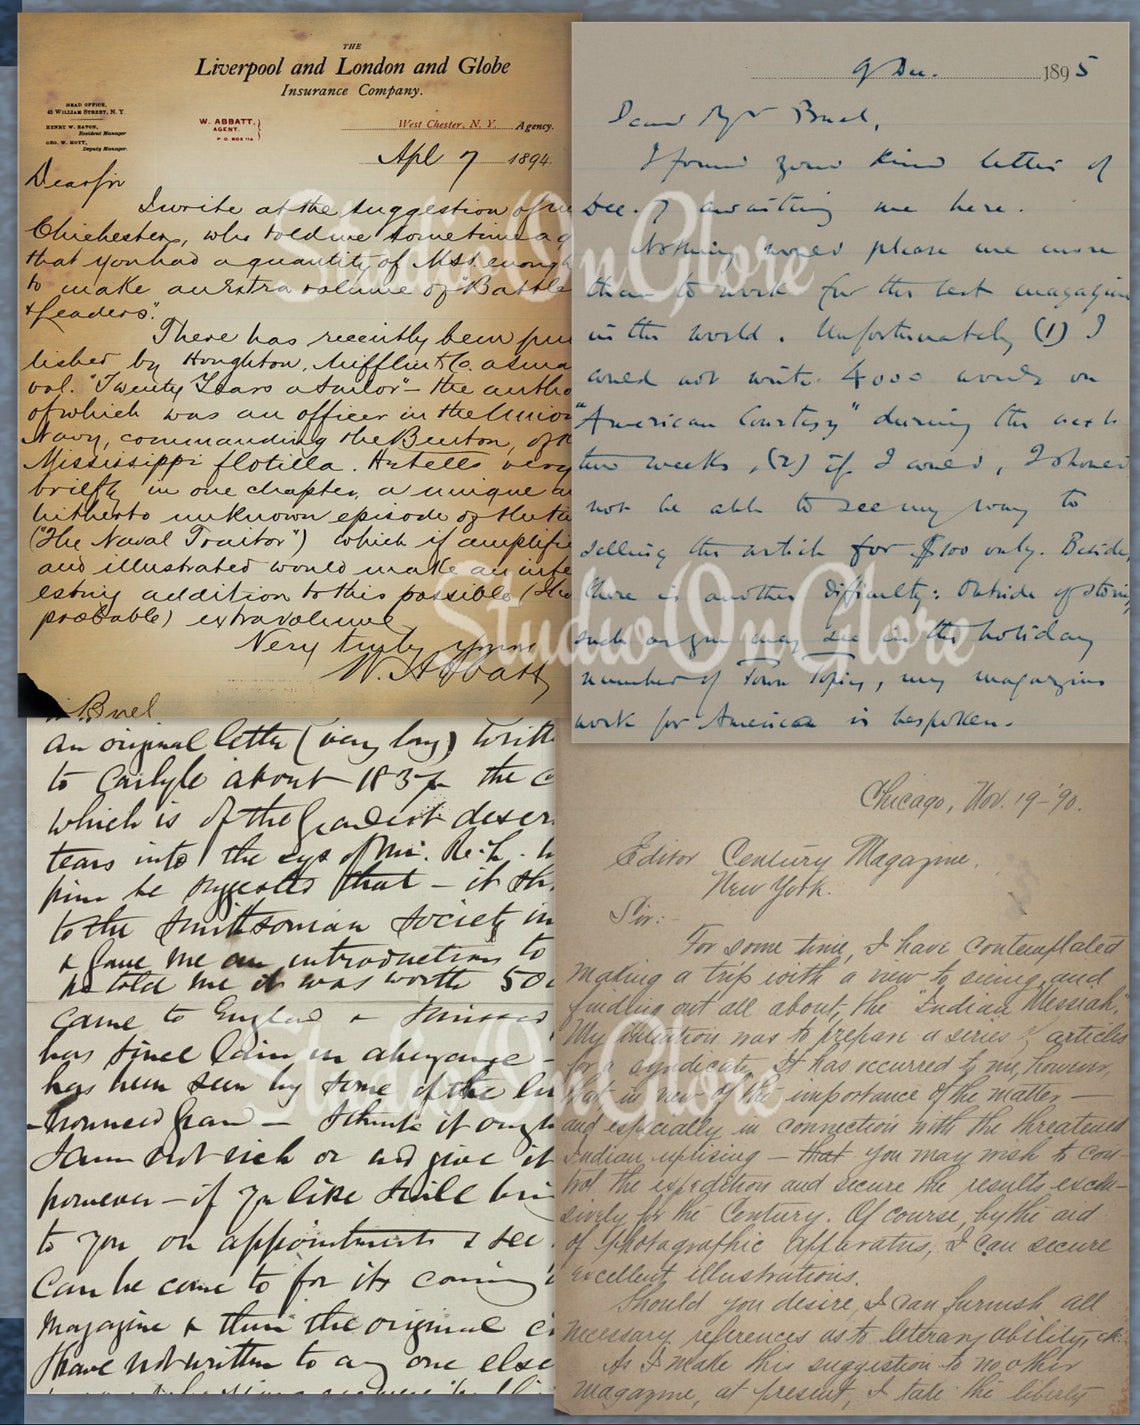 THE
Liverpool and London and Globe
Insurance Company.
HEAD OFFICE,
45 WILLIAM STREET, N. Y.
HENRY W. EATON,
Resident Manager
GEO. W. HOYT,
Deputy Manager.
W. ABBATT,
AGENT.
P. O. BOX 114
West Chester, N. Y. Agency.
Apl 7 1894.
Dear Sir
I write at the suggestion of
Chichester, who told me sometime ag
that you had a quantity of Mss enough
to make an Extra volume of "Battle
& Leaders".
There has recently been pu
lished by Houghton, Mifflin & Co. a sma
vol. "Twenty Years a Sailor" — the autho
of which was an officer in the Union
Navy, commanding the Benton, of
Mississippi flotilla. He tells very
briefly in one chapter, a unique a
hitherto unknown episode of the
("The Naval Traitor") which if amplifi
and illustrated would make an inte
esting addition to this possible (
probable) extra volume
Very truly yours
W. Abbatt
Buel
9 Dec. 1895
Dear Mr Buel,
I found your kind letter of
Dec. 7 awaiting me here.
Nothing would please me more
than to work for the best magazine
in the world. Unfortunately (1) I
could not write 4000 words on
"American Courtesy" during the next
two weeks, (2) if I could, I should
not be able to see my way to
selling the article for $100 only. Beside,
there is another difficulty: Outside of stories
such as you may see in the holiday
number of Town Topics, my magazine
work for America is bespoken.
an original letter (very long) writt
to Carlyle about 183 the c
which is of the
tears into the eye of Mr.
he suggested that — it sh
to the Smithsonian Society in
& gave me an introduction to
he told me it was worth 50
came to England &
has since lain in abeyance —
has been seen by some of the
— I think it ough
I am not rich or and give it
however — if you like I will brin
to you on appointment & see
can be come to for its coming
Magazine & then the original
I have not written to any one else
Chicago, Nov. 19 - '90.
Editor Century Magazine,
New York.
Sir: -
For some time, I have contemplated
making a trip with a view to seeing, and
finding out all about, the "Indian Messiah."
My intention was to prepare a series of articles
for a syndicate. It has occurred to me, however,
that, in view of the importance of the matter —
and especially in connection with the threatened
Indian uprising — that you may wish to con-
trol the expedition and secure the results exclu-
sively for the Century. Of course, by the aid
of photographic apparatus, I can secure
excellent illustrations.
Should you desire, I can furnish all
necessary references as to literary ability, etc.
As I make this suggestion to no other
magazine, at present, I take the liberty
StudioOnGlore
StudioOnGlore
StudioOnGlore